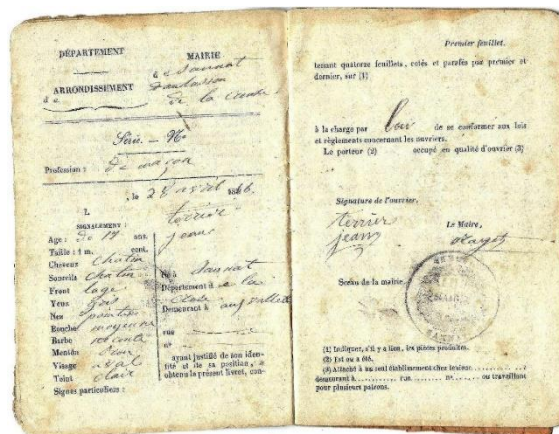 DÉPARTEMENT
MAIRIE
de Sannat
ARRONDISSEMENT
d
de la
Série – No
Profession : de maçon
, le 28 avril 1866.
L
SIGNALEMENT :
terrier
jean
Age : de 17 ans.
Taille : 1 m. cent.
Cheveux chatin
Sourcils chatin
Front large
Yeux gris
Nez pointu
Bouche moyenne
Barbe
Menton
Visage oval
Teint claire
Signes particuliers :
Né à Sannat
Département d e la
Demeurant à
rue
no
ayant justifié de son iden-
tité et de sa position, a
obtenu le présent livret, con-
Premier feuillet.
tenant quatorze feuillets, cotés et parafés par premier et
dernier, sur (1)
à la charge par lui de se conformer aux lois
et règlements concernant les ouvriers.
Le porteur (2) occupé en qualité d'ouvrier (3)
Signature de l'ouvrier.
terrier
jean
Le Maire,
Sceau de la mairie.
MAIRIE
(1) Indiquer, s'il y a lieu, les pièces produites.
(2) Est ou a été.
(3) Attaché à un seul établissement chez lesieur
demeurant à rue no ou travaillant
pour plusieurs patrons.